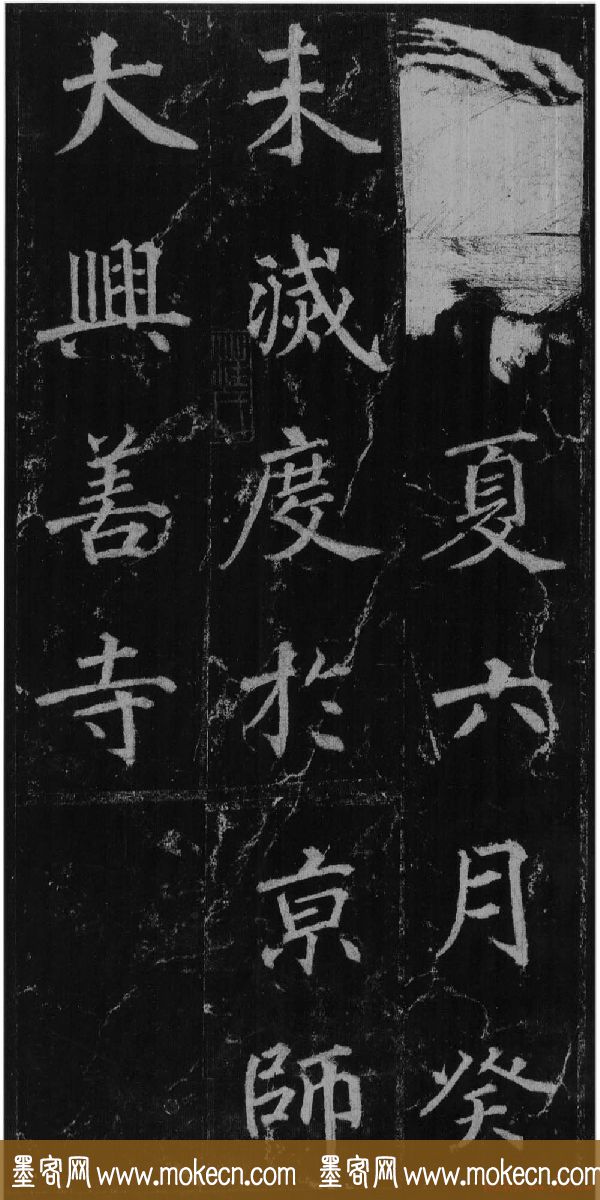 夏六月癸
未滅度於京師
大興善寺
墨客网 www.mokecn.com 墨客网 www.mokecn.com